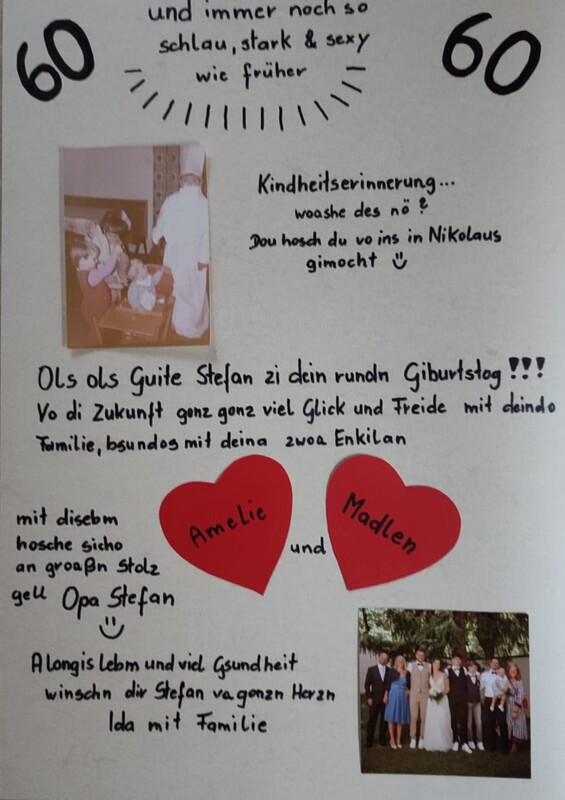 und immer noch so
60 schlau, stark & sexy 60
wie früher
Kindheitserinnerung...
woashe des nö?
Dou hosch du vo ins in Nikolaus
gimocht
Ols ols Guite Stefan zi dein rundn Giburtstog!!!
Vo di Zukunft gonz gonz viel Glick und Freide mit deindo
Familie, bsundos mit deina zwoa Enkilan
Amelie und Madlen
mit disebm
hosche sicho
an groaßn Stolz
gell Opa Stefan
A longis Lebm und viel Gsundheit
winschn dir Stefan va gonzn Herzn
Ida mit Familie